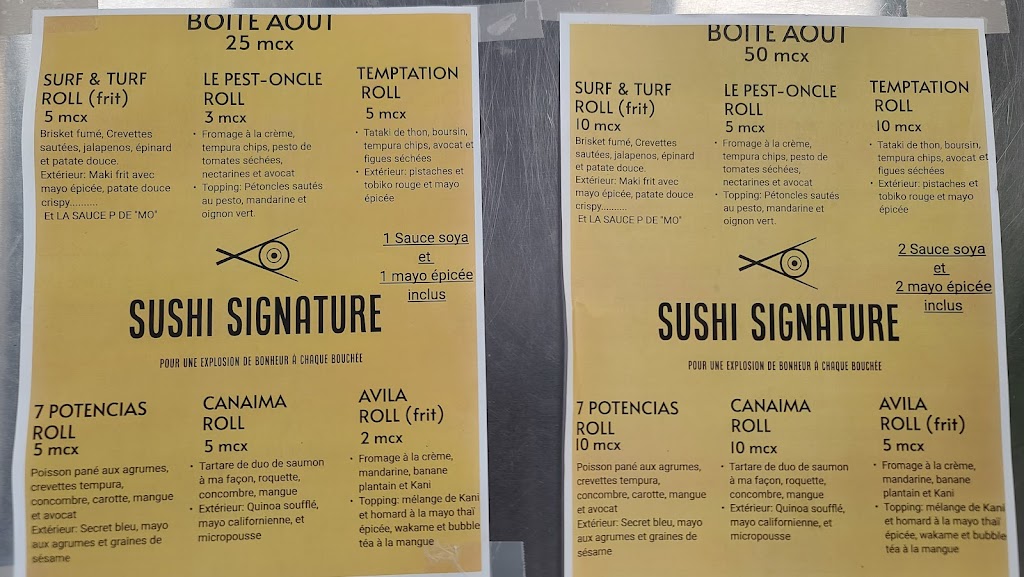 BOITE AOUT
25 mcx
SURF & TURF
ROLL (frit)
5 mcx
Brisket fumé, Crevettes
sautées, jalapenos, épinard
et patate douce.
Extérieur: Maki frit avec
mayo épicée, patate douce
crispy..........
Et LA SAUCE P DE "MO"
LE PEST-ONCLE
ROLL
3 mcx
• Fromage à la crème,
tempura chips, pesto de
tomates séchées,
nectarines et avocat
• Topping: Pétoncles sautés
au pesto, mandarine et
oignon vert.
TEMPTATION
ROLL
5 mcx
• Tataki de thon, boursin,
tempura chips, avocat et
figues séchées
• Extérieur: pistaches et
tobiko rouge et mayo
épicée
1 Sauce soya
et
1 mayo épicée
inclus
SUSHI SIGNATURE
POUR UNE EXPLOSION DE BONHEUR À CHAQUE BOUCHÉE
7 POTENCIAS
ROLL
5 mcx
Poisson pané aux agrumes,
crevettes tempura,
concombre, carotte, mangue
et avocat
Extérieur: Secret bleu, mayo
aux agrumes et graines de
sésame
CANAIMA
ROLL
5 mcx
• Tartare de duo de saumon
à ma façon, roquette,
concombre, mangue
• Extérieur: Quinoa soufflé,
mayo californienne, et
micropousse
AVILA
ROLL (frit)
2 mcx
• Fromage à la crème,
mandarine, banane
plantain et Kani
• Topping: mélange de Kani
et homard à la mayo thaï
épicée, wakame et bubble
téa à la mangue
BOITE AOUT
50 mcx
SURF & TURF
ROLL (frit)
10 mcx
Brisket fumé, Crevettes
sautées, jalapenos, épinard
et patate douce.
Extérieur: Maki frit avec
mayo épicée, patate douce
crispy..........
Et LA SAUCE P DE "MO"
LE PEST-ONCLE
ROLL
5 mcx
• Fromage à la crème,
tempura chips, pesto de
tomates séchées,
nectarines et avocat
• Topping: Pétoncles sautés
au pesto, mandarine et
oignon vert.
TEMPTATION
ROLL
10 mcx
• Tataki de thon, boursin,
tempura chips, avocat et
figues séchées
• Extérieur: pistaches et
tobiko rouge et mayo
épicée
2 Sauce soya
et
2 mayo épicée
inclus
SUSHI SIGNATURE
POUR UNE EXPLOSION DE BONHEUR À CHAQUE BOUCHÉE
7 POTENCIAS
ROLL
10 mcx
Poisson pané aux agrumes,
crevettes tempura,
concombre, carotte, mangue
et avocat
Extérieur: Secret bleu, mayo
aux agrumes et graines de
sésame
CANAIMA
ROLL
10 mcx
• Tartare de duo de saumon
à ma façon, roquette,
concombre, mangue
• Extérieur: Quinoa soufflé,
mayo californienne, et
micropousse
AVILA
ROLL (frit)
5 mcx
• Fromage à la crème,
mandarine, banane
plantain et Kani
• Topping: mélange de Kani
et homard à la mayo thaï
épicée, wakame et bubble
téa à la mangue